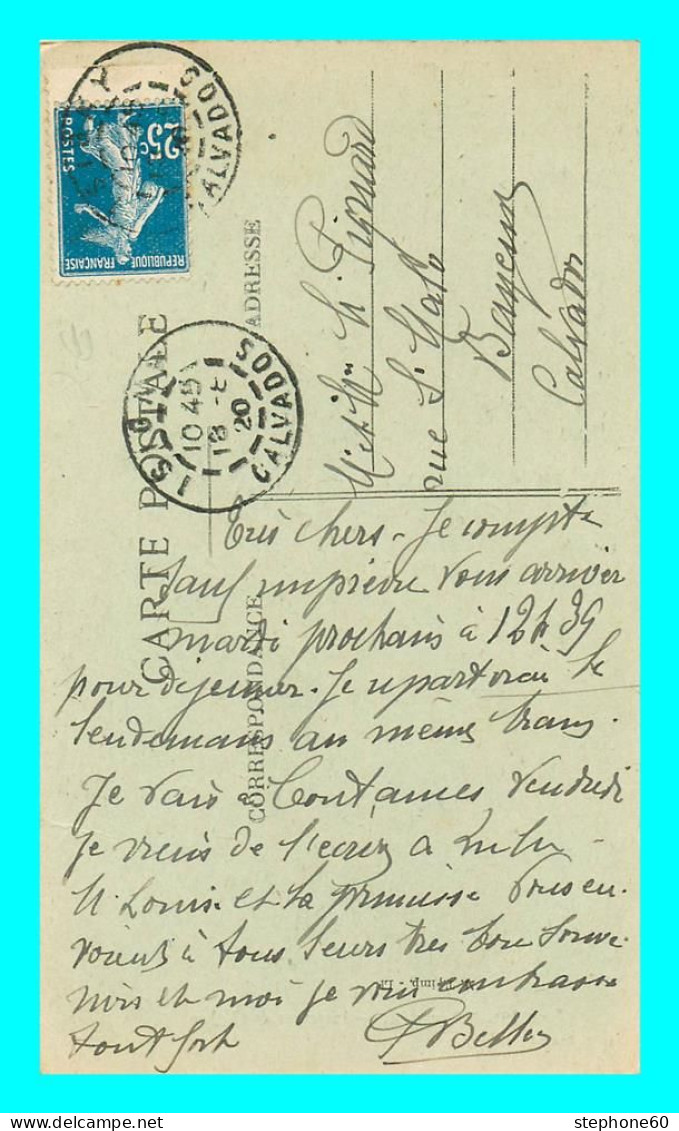 CARTE POSTALE
CORRESPONDANCE
ADRESSE
REPUBLIQUE FRANÇAISE
25c
POSTES
CALVADOS
ISIGNY
10 45
18 -8
20
CALVADOS
rue St Malo
Bayeux
Calvados
Très chers - Je compte
sauf imprévu vous arriver
mardi prochain à 12h39
pour déjeuner. Je repartirai le
lendemain au même train.
Je vais à Coutances vendredi
Je viens de l'écrire à Lulu -
M. Louis et la princesse vous en-
voient à tous leurs très bon souve-
nirs et moi je vous embrasse
tout fort
stephone60